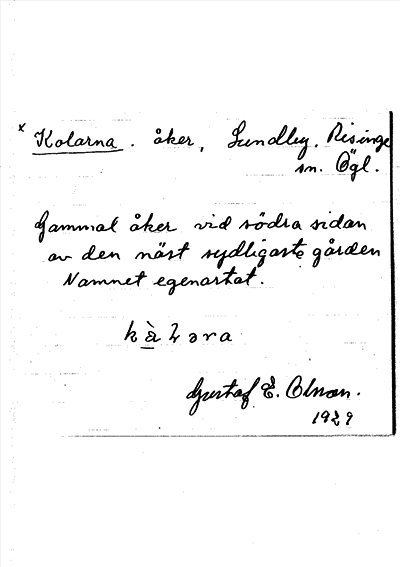 x Kolarna. åker, Lundby. Risinge
sn. Ögl.
Gammal åker vid södra sidan
av den näst sydligaste gården
Namnet egenartat.
Gustaf E. Olson.
1929